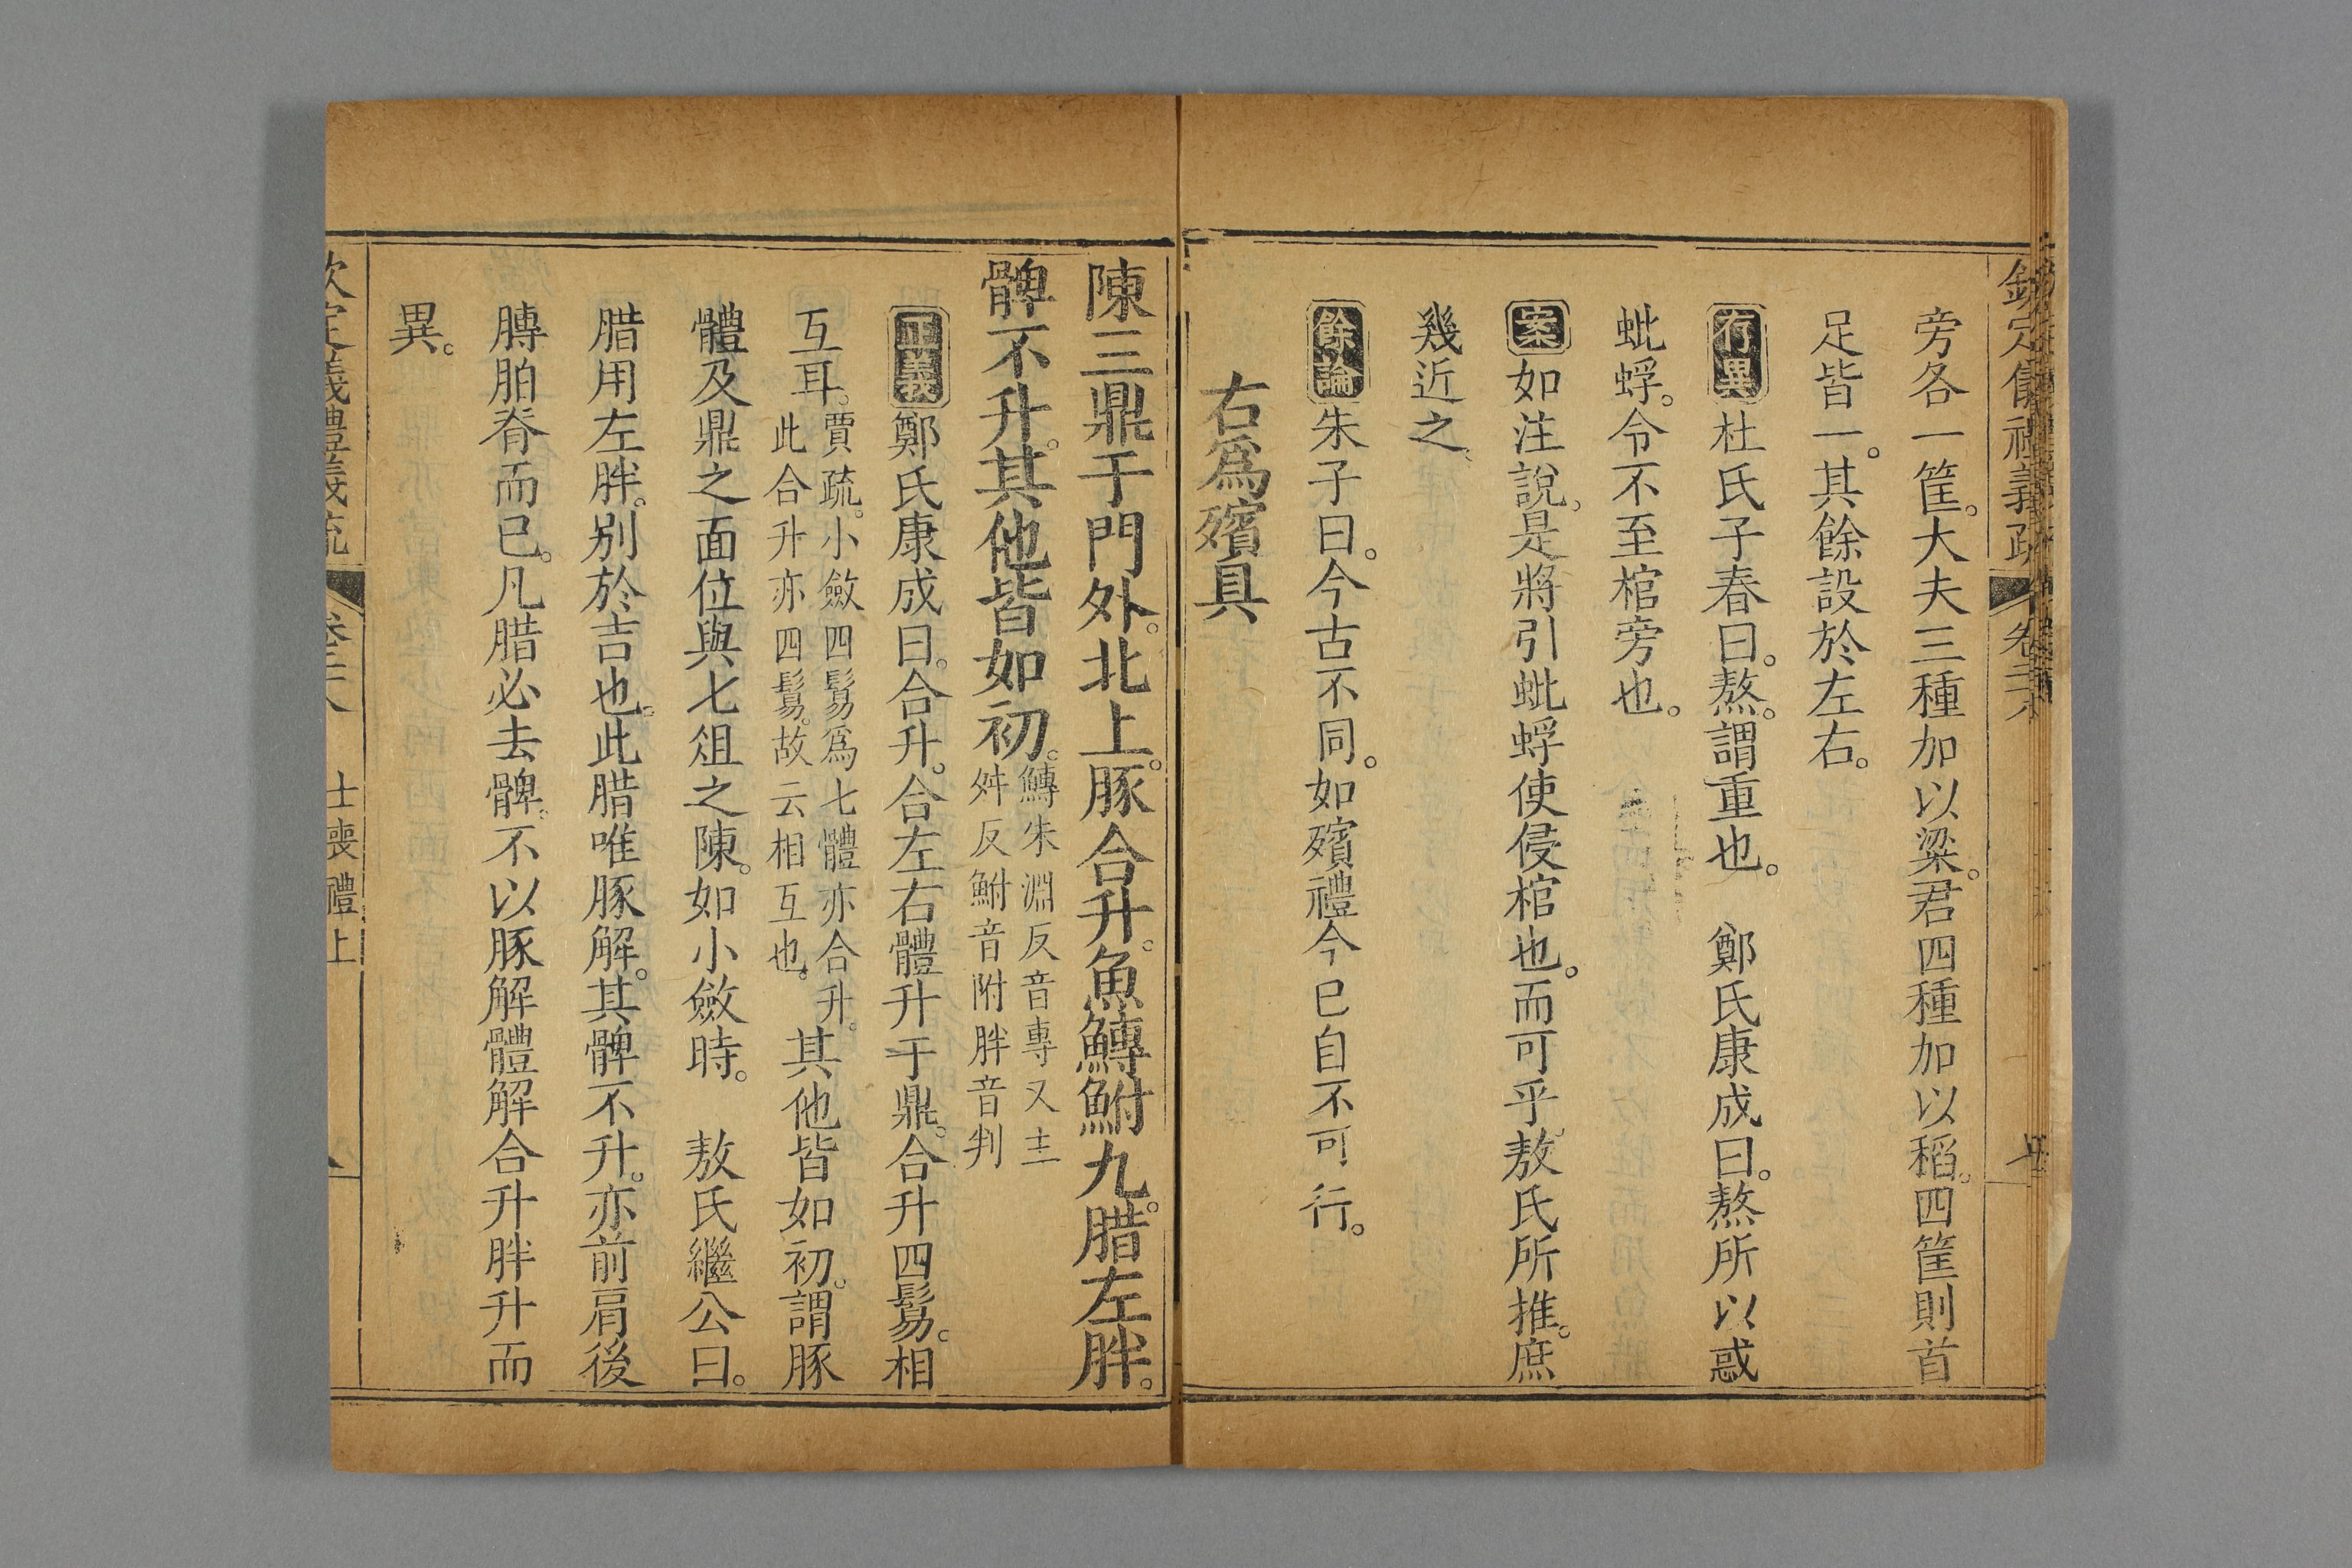 欽定儀禮義疏 卷二十八
旁各一筐。大夫三種加以粱。君四種加以稻。四筐則首
足皆一。其餘設於左右。
存異 杜氏子春曰。熬。謂重也。 鄭氏康成曰。熬所以惑
蚍蜉。令不至棺旁也。
案 如注說。是將引蚍蜉使侵棺也。而可乎。敖氏所推。庶
幾近之。
餘論 朱子曰。今古不同。如殯禮今已自不可行。
右爲殯具
陳三鼎于門外。北上。豚合升。魚鱄鮒九。腊左胖。
髀不升。其他皆如初。鱄朱淵反音專又士
舛反鮒音附胖音判
正義 鄭氏康成曰。合升。合左右體升于鼎。合升四鬄。相
互耳。賈疏。小斂四鬄爲七體亦合升。
此合升亦四鬄。故云相互也。其他皆如初。謂豚
體及鼎之面位與七俎之陳。如小斂時。 敖氏繼公曰。
腊用左胖。別於吉也。此腊唯豚解。其髀不升。亦前肩後
膞胉脊而已。凡腊必去髀。不以豚解體解合升胖升而
異。
欽定儀禮義疏 卷二十八 士喪禮上